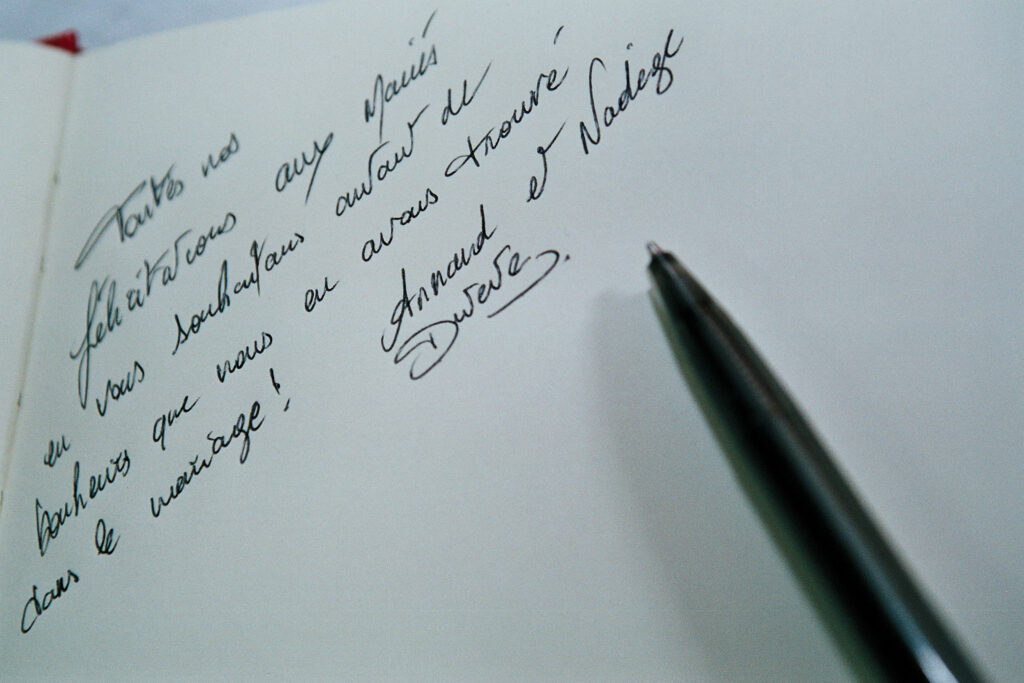 Toutes nos
félicitations aux Mariés
en vous souhaitans autant de
bonheurs que nous en avons trouvé
dans le mariage!
Armand et Nadège